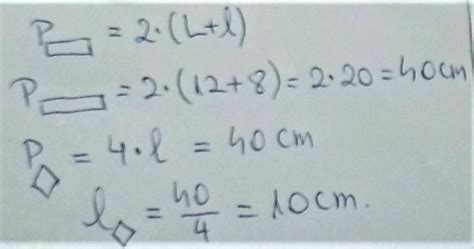 P▭ = 2·(L+l)
P▭ = 2·(12+8) = 2·20 = 40cm
P◇ = 4·l = 40cm
l◇ = 40/4 = 10cm.